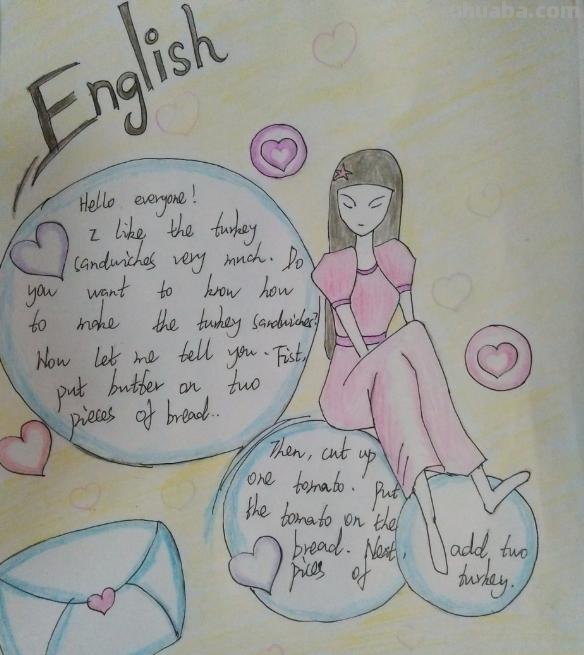 English
Hello everyone!
I like the turkey
sandwiches very much. Do
you want to know how
to make the turkey sandwiches?
Now let me tell you. Fist,
put butter on two
pieces of bread..
Then, cut up
one tomato. Put
the tomato on the
bread. Next,
pices of
add two
turkey.